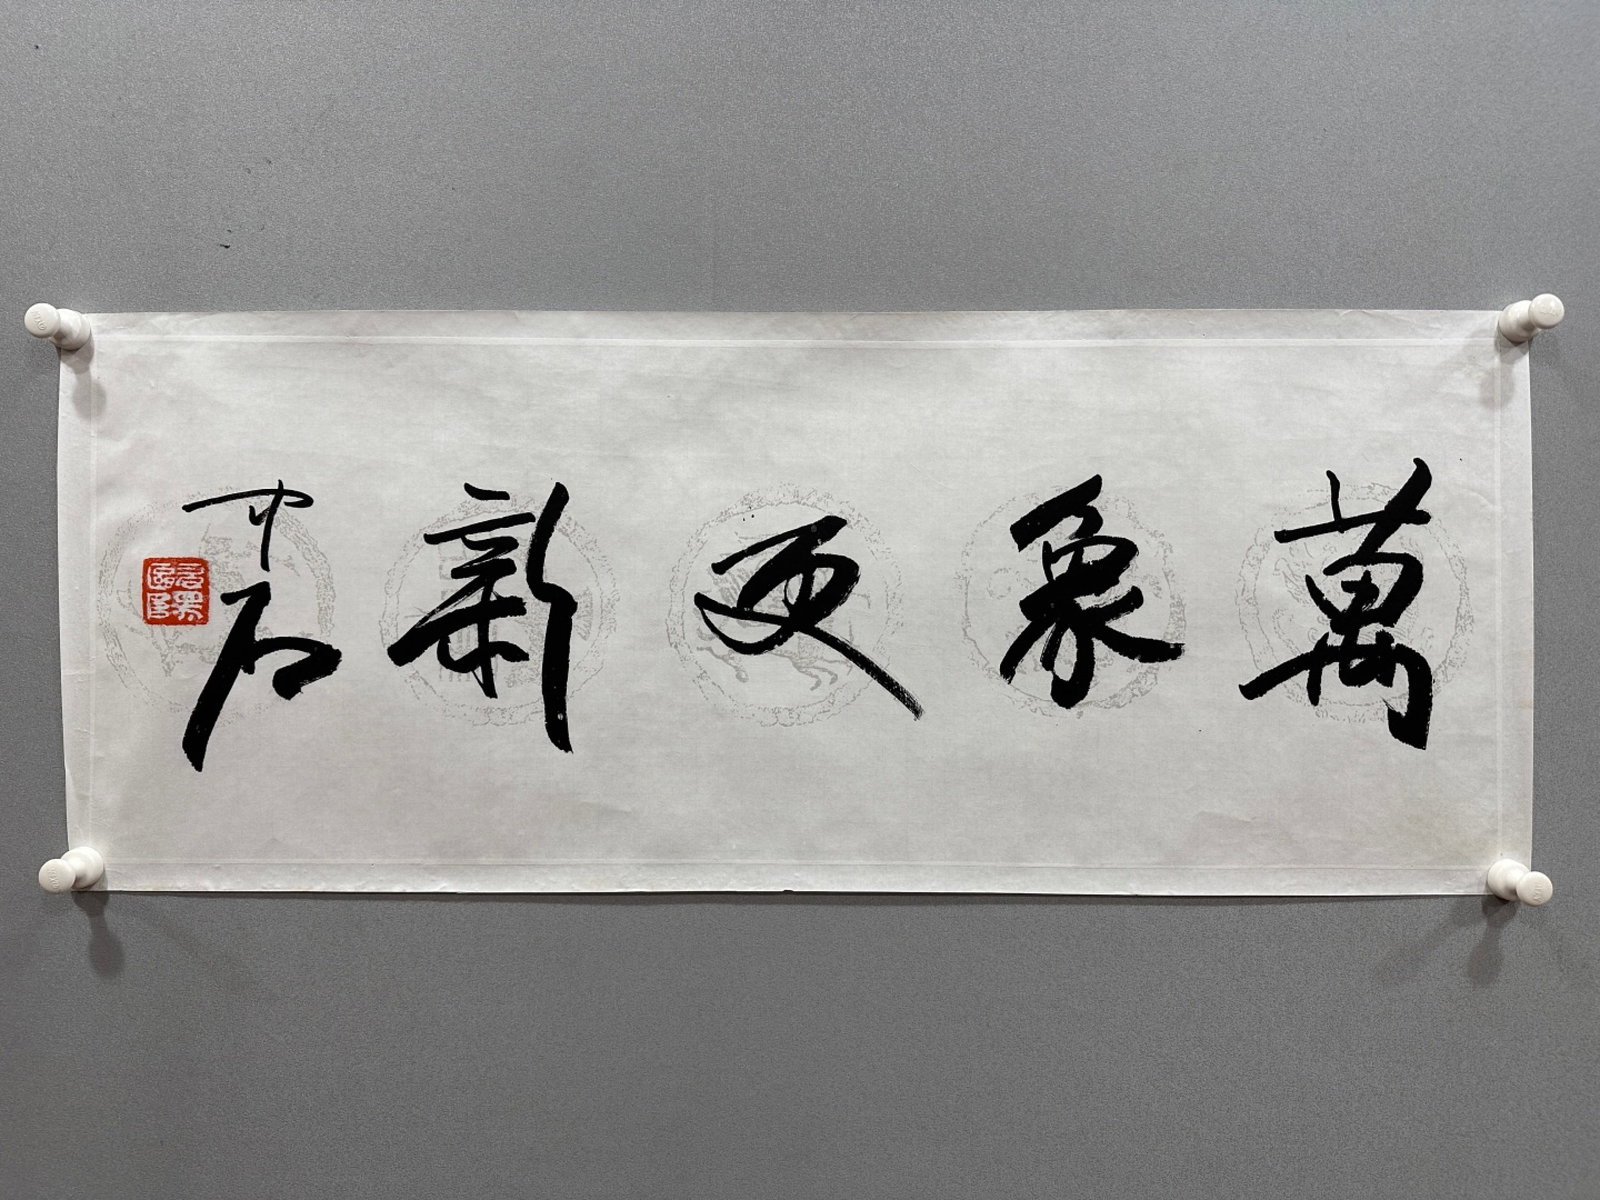 萬象更新
中石